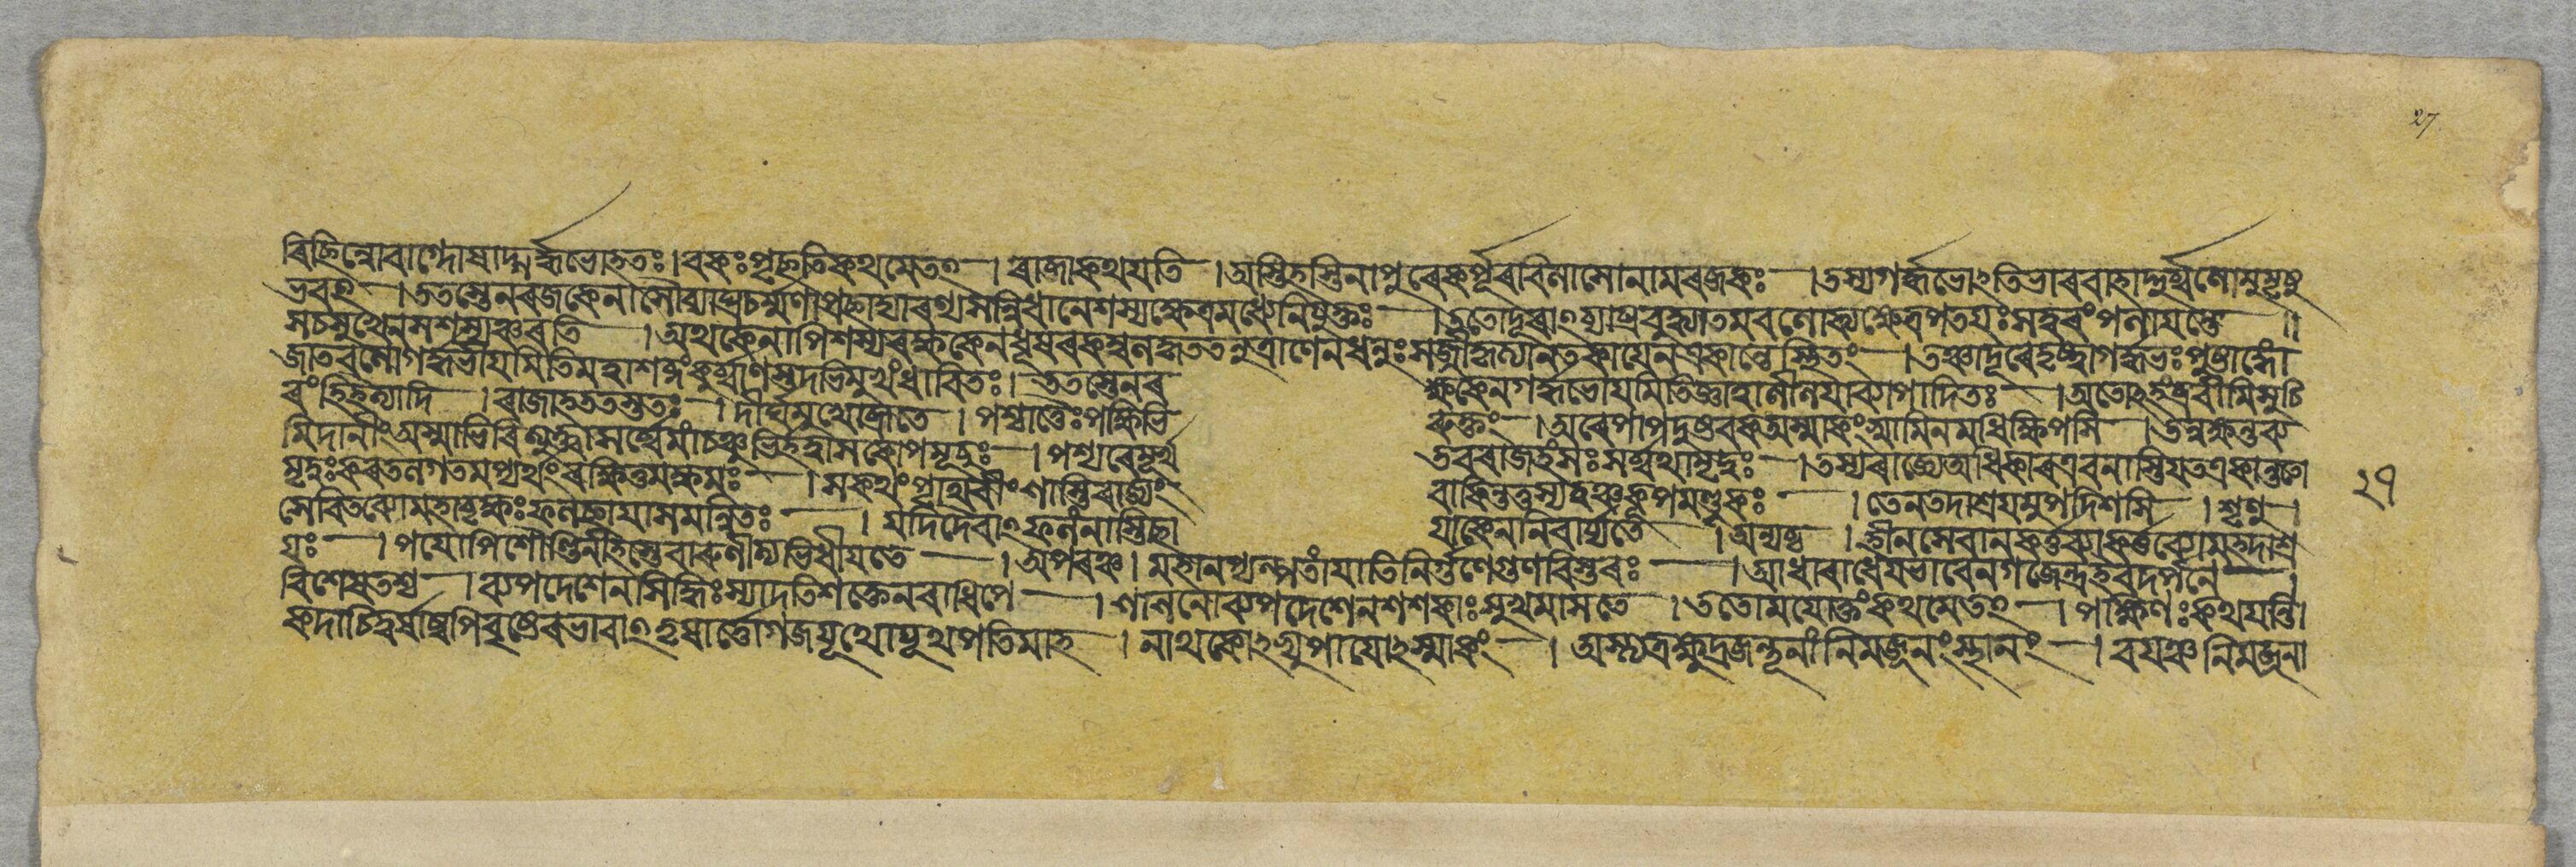 ৰিছিন্নোবাগ্দোষাদ্গর্দ্দভোহতঃ।বকঃপৃছতিকথমেতৎ।ৰাজাকথয়তি।অস্তিহস্তিনাপুৰেকর্পূৰবিলাসোনামৰজকঃ।তস্যগর্দ্দভোঽতিভাৰবাহাদ্দুর্ব্বলোমুমূর্ষু
ভবৎ।ততস্তেনৰজকেনাসৌব্যাঘ্রচর্ম্মণাপ্রছাদ্যাৰণ্যসন্নিধানেশস্যক্ষেত্রমধ্যেনিযুক্তঃ।ততোদূৰাৎব্যাঘ্রবুদ্ধ্যাতমবলোক্যক্ষেত্রপতয়ঃসত্বৰংপলায়ন্তে॥
সচসুখেনসশস্যঞ্চৰতি।অথকেনাপিশস্যৰক্ষকেনধূসৰকম্বলকৃততনুত্রাণেনধনুঃসজ্জীকৃত্যানতকায়েনএকান্তেস্থিতং।তঞ্চদূৰেদৃষ্ট্বাগর্দ্দভঃপুষ্টাঙ্গো
জাতবলোগর্দ্দভীয়মিতিমত্বাশব্দংকুর্ব্বাণস্তদভিমুখংধাবিতঃ।ততস্তেনৰক্ষকেনগর্দ্দভোয়মিতিজ্ঞাত্বালীলয়াব্যাপাদিতঃ।অতোঽহংব্রবীমিসুচি
ৰংহিত্যাদি।ৰাজাহততস্ততঃ।দীর্ঘমুখোব্রূতে।পশ্চাত্তৈঃপক্ষিভিৰুক্তং।অৰেপাপদুষ্টবকঅস্মাকংস্বামিনমধিক্ষিপসি।তন্নক্ষন্তব্য
মিদানীংঅস্মাভিৰিত্যুক্ত্বাসর্ব্বেমাংচঞ্চুভির্হত্বাসকোপমূচুঃ।পশ্যৰেমূর্খতবৰাজহংসঃসর্ব্বথামৃদুঃ।তস্যৰাজ্যেঅধিকাৰএবনাস্তিযতএকান্ততো
মৃদুঃকৰতলগতমপ্যর্থংৰক্ষিতুমক্ষমঃ।সকথংপৃথিবীংশাস্তিৰাজ্যংবাকিন্তুত্বম্যকূপমণ্ডুকঃ।তেনতদাশ্রয়মুপদিশসি।শৃণু।
সেবিতব্যোমহাবৃক্ষঃফলছায়াসমন্বিতঃ।যদিদৈবাৎফলংনাস্তিছায়াকেননিবার্য্যতে।অন্যচ্চ।হীনসেবানকর্ত্তব্যাকর্ত্তব্যোমহদাশ্র
য়ঃ।পয়োপিশৌণ্ডিনীহস্তেবাৰুণীত্যভিধীয়তে।অপৰঞ্চ।মহানপ্যল্পতাংযাতিনির্গুণেগুণবিস্তৰঃ।আধাৰাধেয়ভাবেনগজেন্দ্রইবদর্পণে।
বিশেষতশ্চ।ব্যপদেশেনসিদ্ধিঃস্যাদতিশক্তেনৰাধিপে।শশিনোব্যপদেশেনশশকাঃসুখমাসতে।ততোময়োক্তংকথমেতৎ।পক্ষিণঃকথয়ন্তি।
কদাচিদ্বর্ষাস্বপিবৃষ্টেৰভাবাৎতৃষার্ত্তোগজযূথোযূথপতিমাহ।নাথকোঽভ্যুপায়োঽস্মাকং।অস্ত্যত্রক্ষুদ্রজন্তূনাংনিমজ্জনংস্থানং।বয়ঞ্চনিমজ্জনা
২৭
27